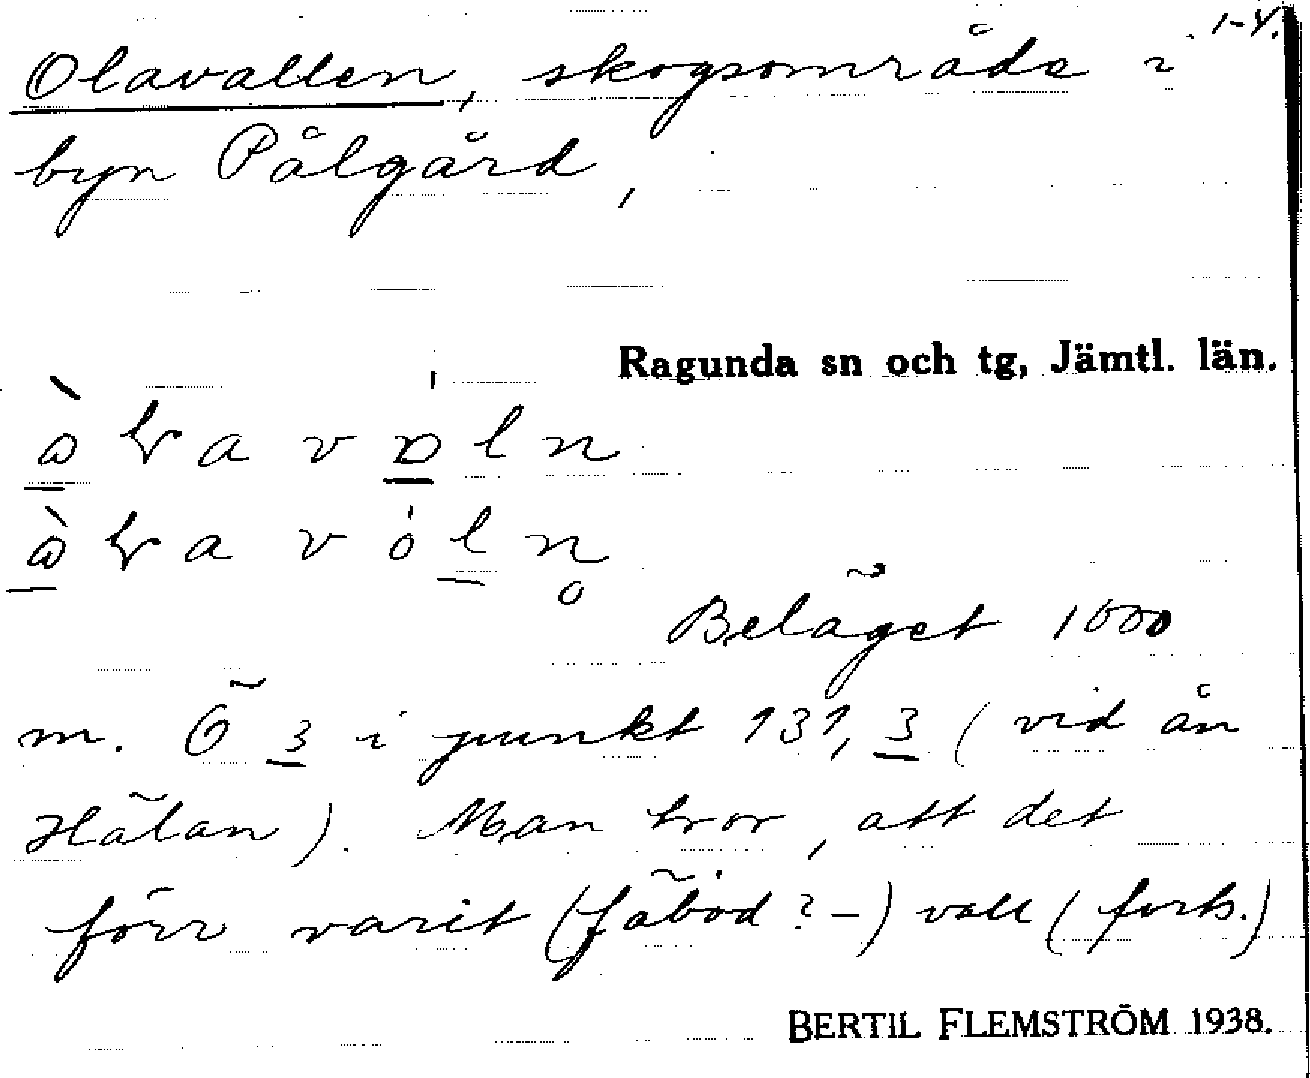 1-4.
Olavallen, skogsområde i
byn Pålgård,
Ragunda sn och tg, Jämtl. län.
Beläget 1000
m. Ö 3 i punkt 131,3 (vid ån
Hälån). Man tror, att det
förr varit (fäbod?-) vall (forts.)
BERTIL FLEMSTRÖM 1938.